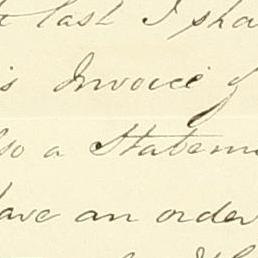 last I sha
is Invoice of
lso a Stateme
have an order